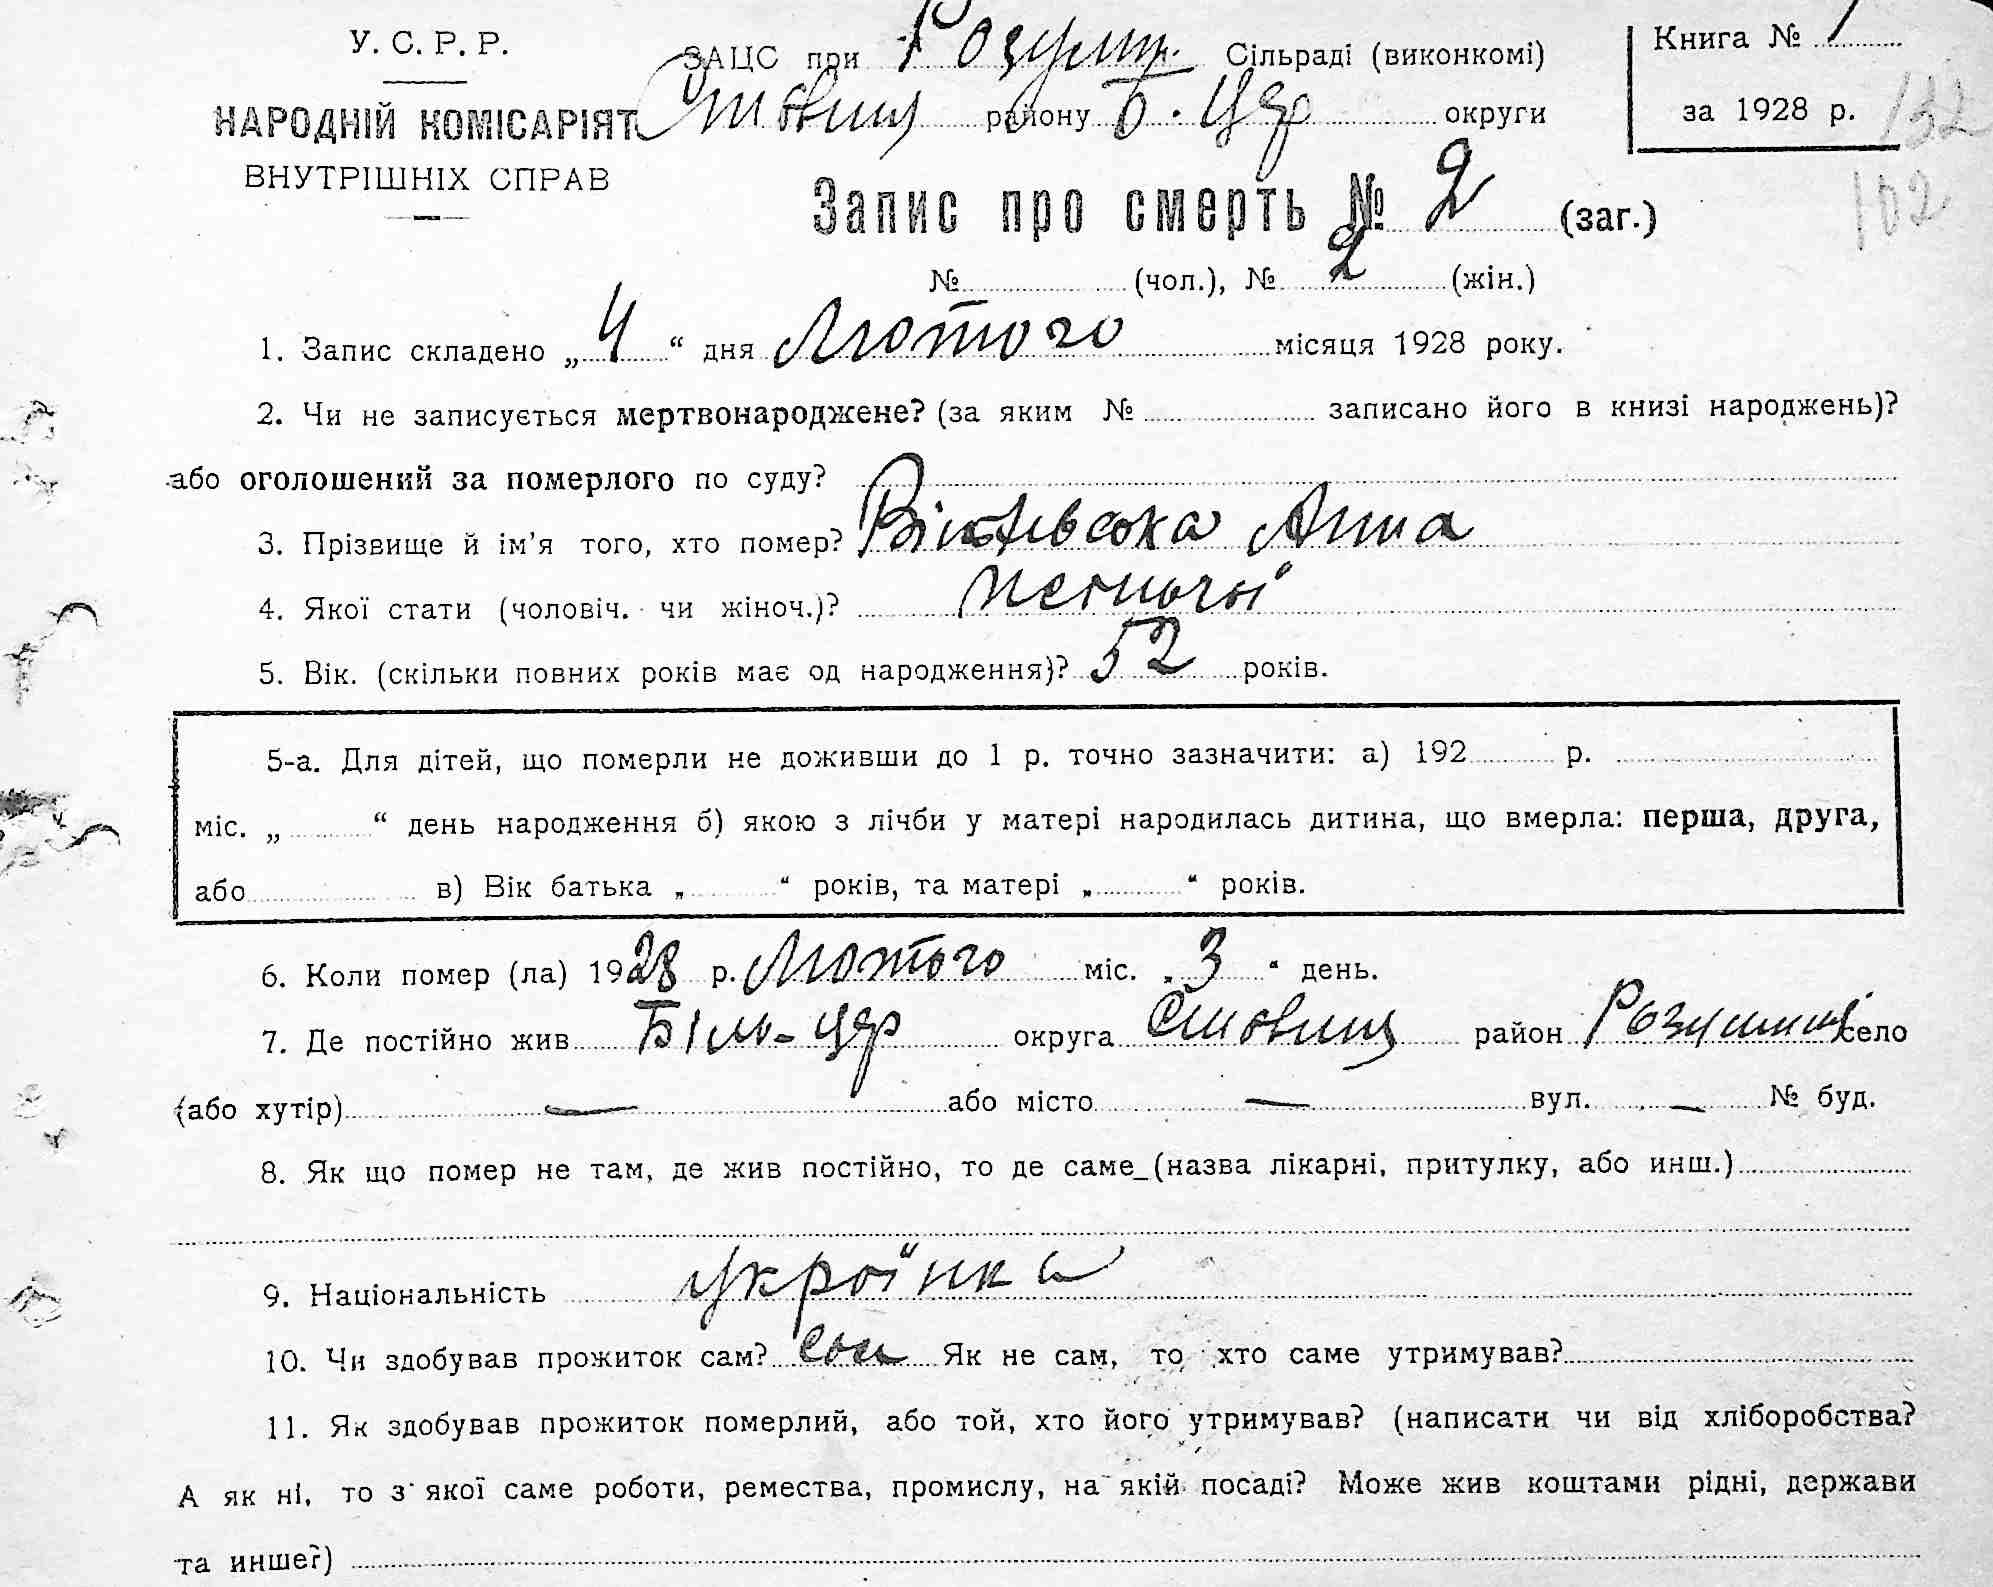 У. С. Р. Р.
НАРОДНІЙ КОМІСАРІЯТ
ВНУТРІШНІХ СПРАВ
ЗАЦС при Розумн. Сільраді (виконкомі)
Ставищ району Б. Цер округи
Книга № 1
за 1928 р.
132
102
Запис про смерть № 2 (заг.)
№ (чол.), № 2 (жін.)
1. Запис складено „ 4 “ дня Лютого місяця 1928 року.
2. Чи не записується мертвонароджене? (за яким № записано його в книзі народжень)?
або оголошений за померлого по суду?
3. Прізвище й ім'я того, хто помер? Анна
4. Якої стати (чоловіч. чи жіноч.)?
5. Вік. (скільки повних років має од народження)? 52 років.
5-а. Для дітей, що померли не доживши до 1 р. точно зазначити: а) 192 р.
міс. „ “ день народження б) якою з лічби у матері народилась дитина, що вмерла: перша, друга,
або в) Вік батька „ “ років, та матері „ “ років.
6. Коли помер (ла) 1928 р. Лютого міс. „ 3 “ день.
7. Де постійно жив Біло-Цер округа Ставищ район село
(або хутір) — або місто — вул. — № буд.
8. Як що помер не там, де жив постійно, то де саме (назва лікарні, притулку, або инш.)
9. Національність українка
10. Чи здобував прожиток сам? сам Як не сам, то хто саме утримував?
11. Як здобував прожиток померлий, або той, хто його утримував? (написати чи від хліборобства?
А як ні, то з якої саме роботи, ремества, промислу, на якій посаді? Може жив коштами рідні, держави
та инше?)